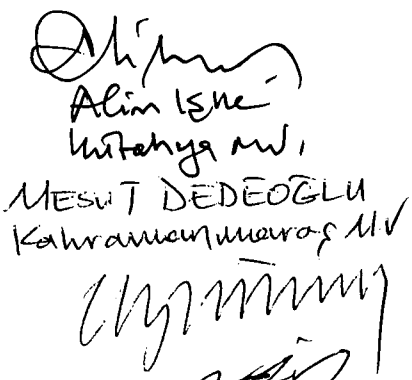 Alim Işık
Kütahya MV.
MESUT DEDEOĞLU
Kahramanmaraş MV